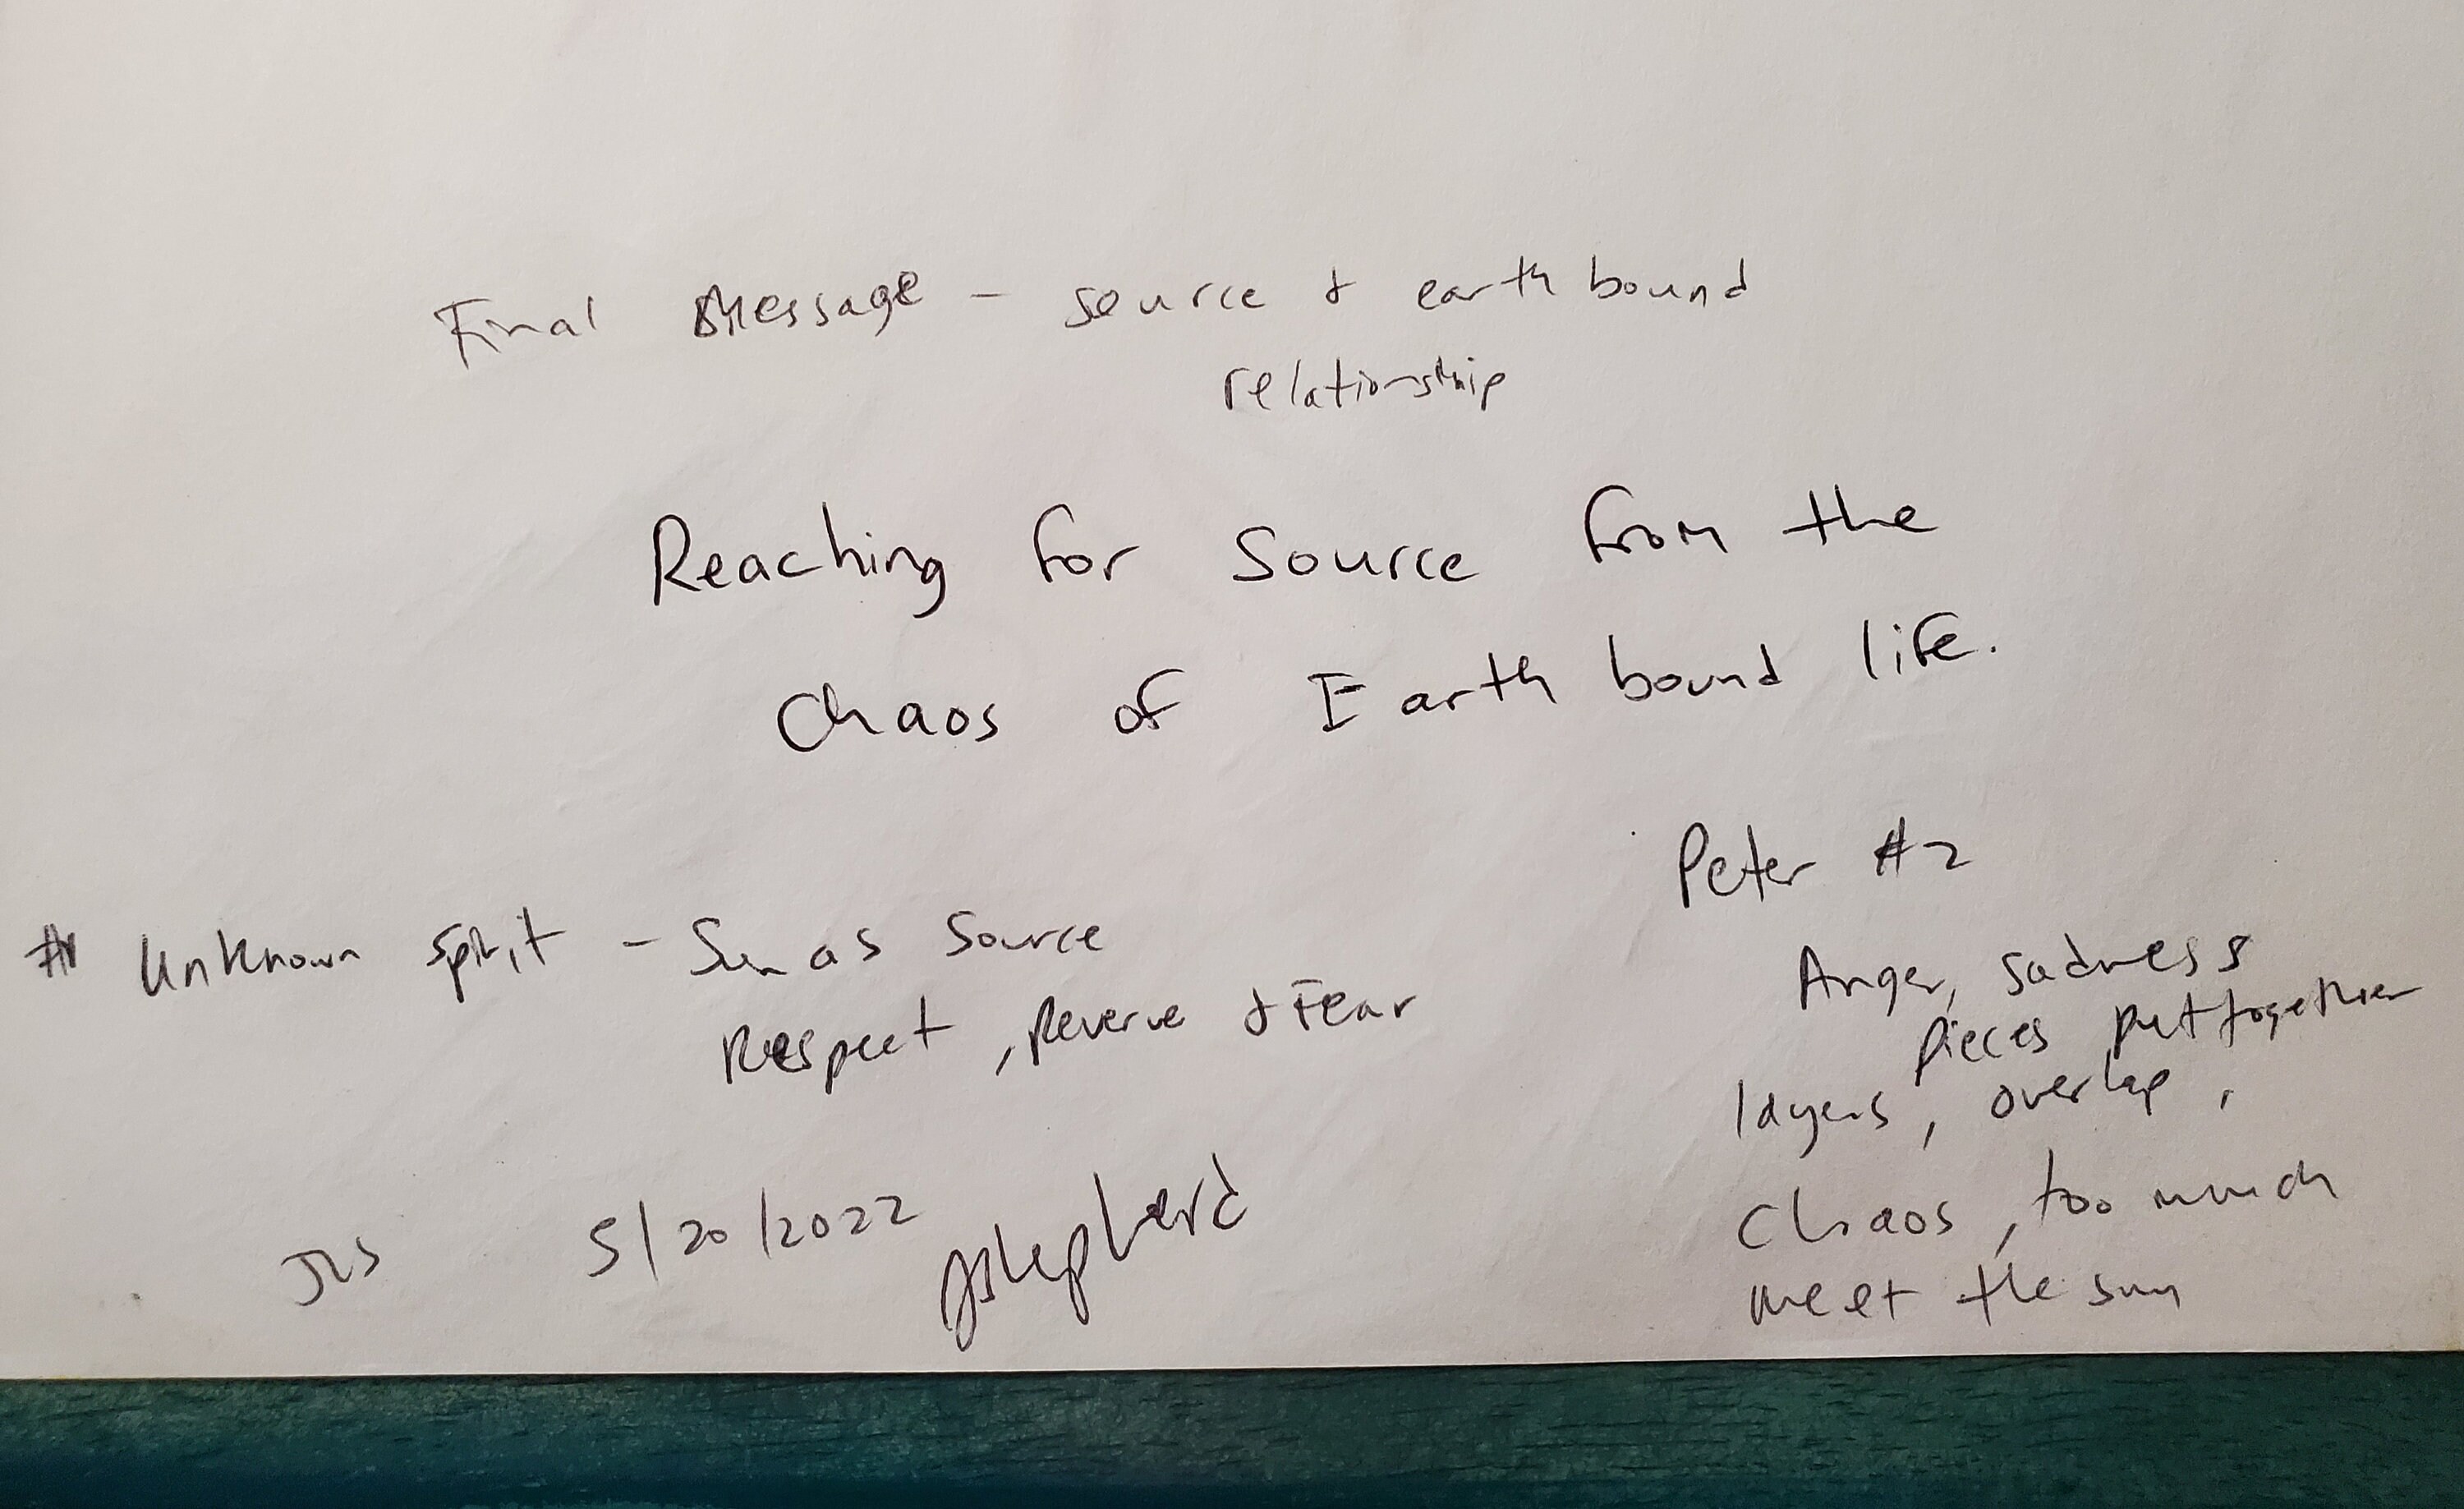 Final Message - source & earth bound
relationship
Reaching for Source from the
Chaos of Earth bound life.
#1 Unknown Spirit - Sun as Source
Respect, Reverve & Fear
Peter #2
Anger, sadness
pieces put together
layers, overlap,
Chaos, too much
meet the sun
JLS 5/20/2022 JShepherd